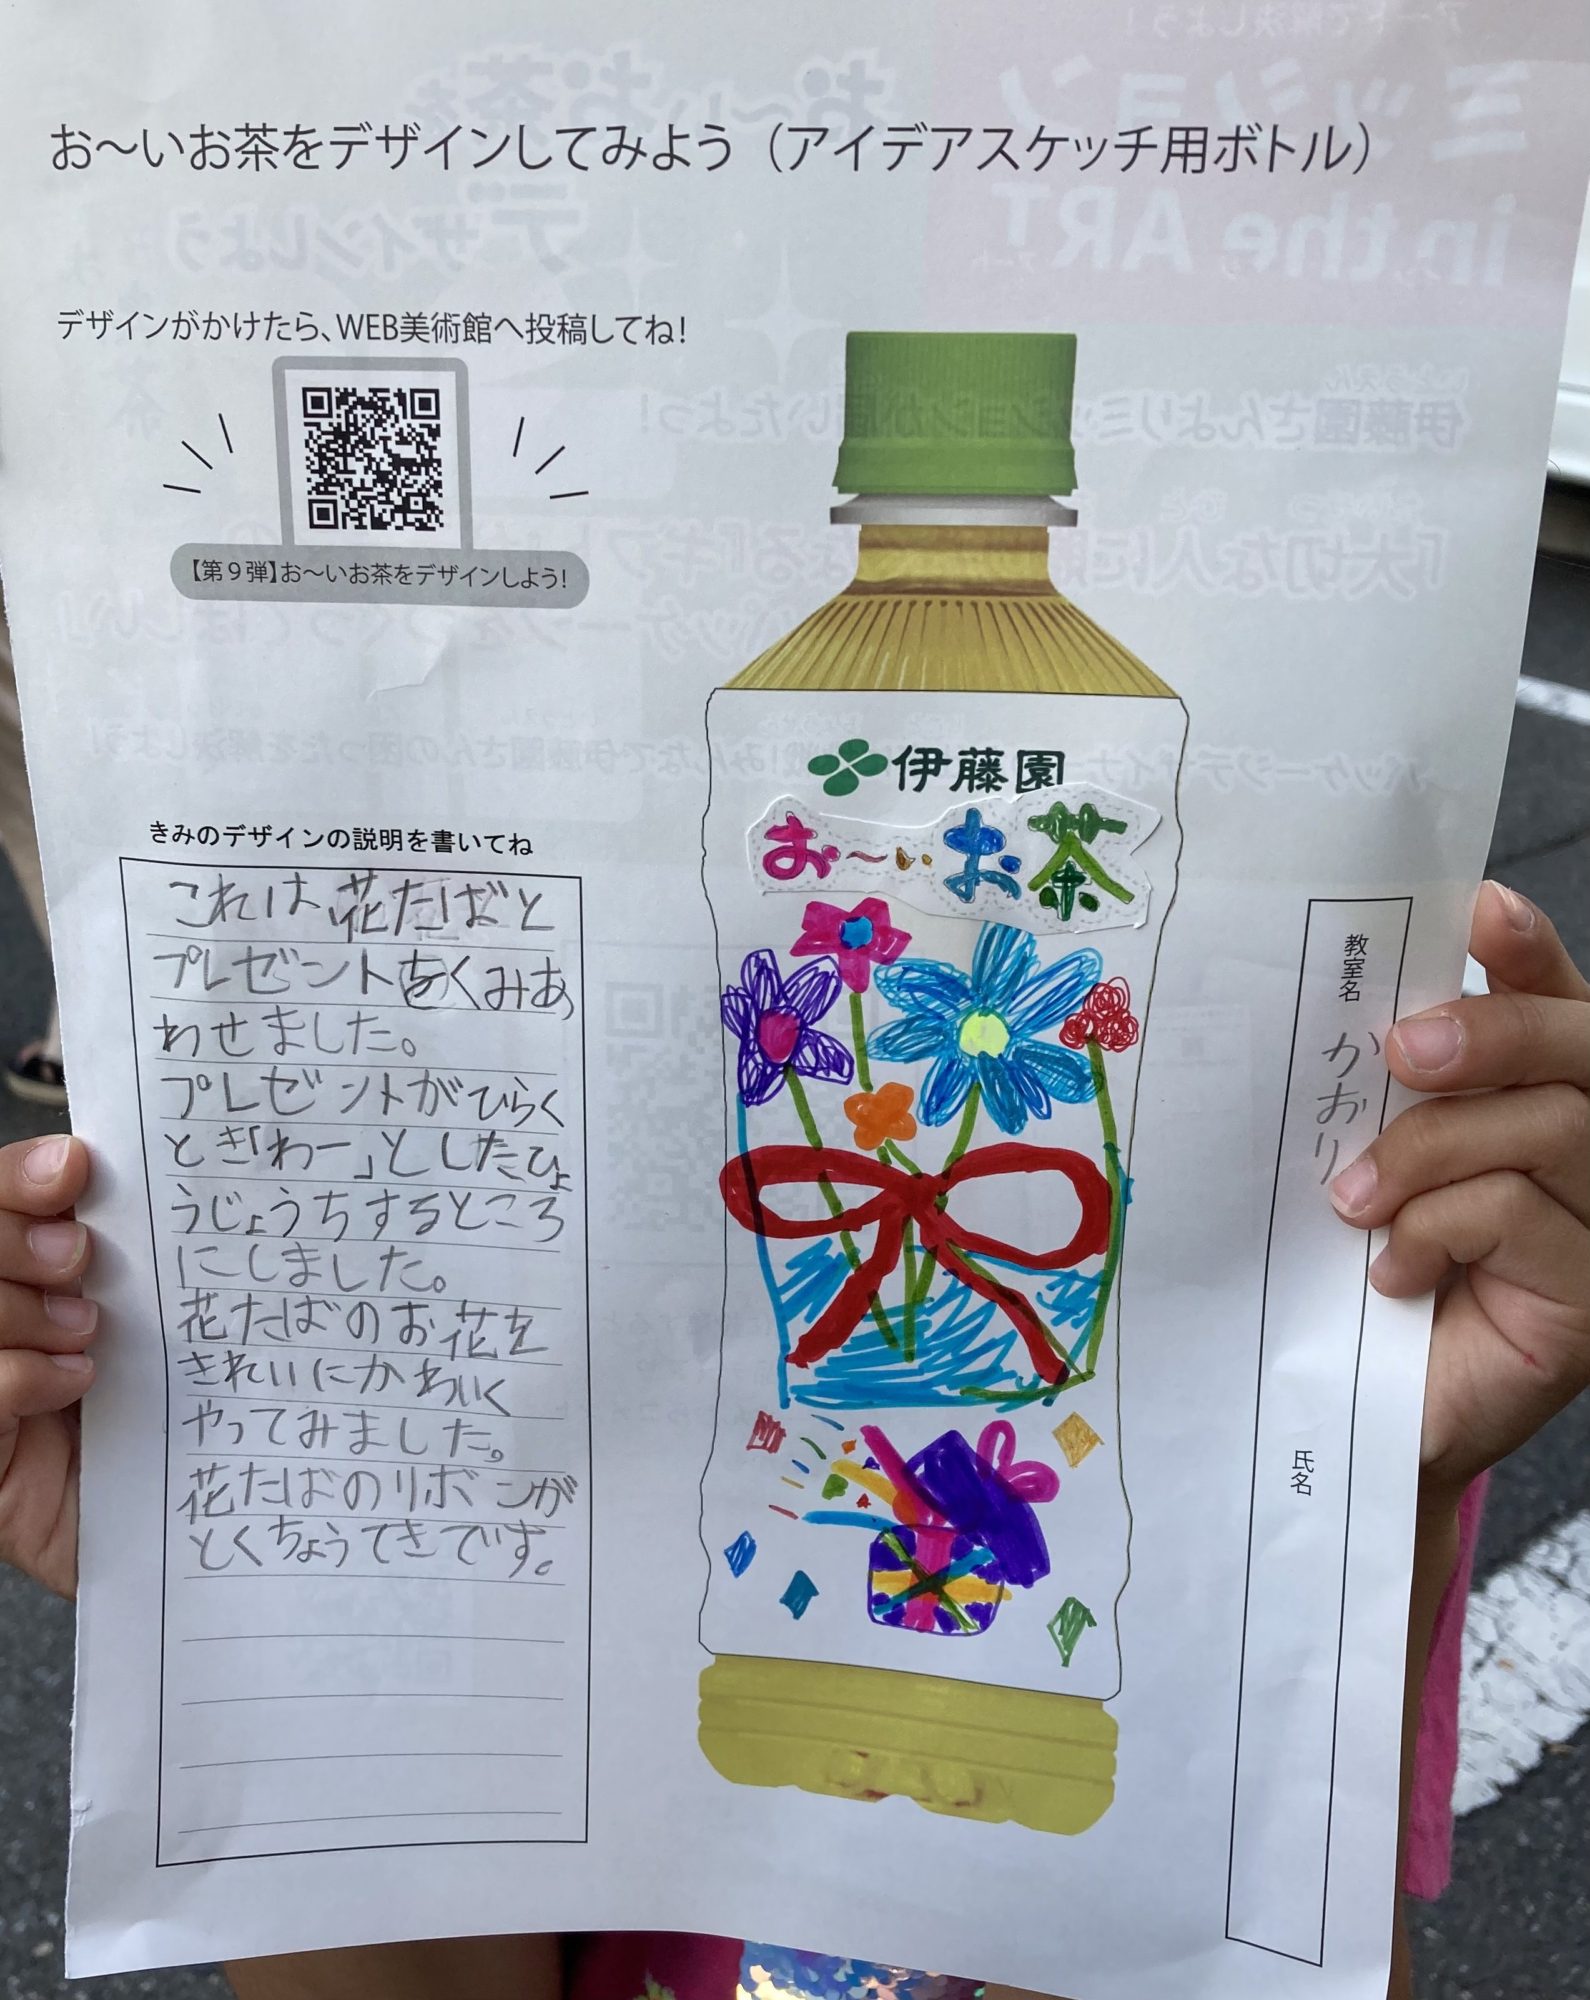 お〜いお茶をデザインしてみよう（アイデアスケッチ用ボトル）
デザインがかけたら、WEB美術館へ投稿してね！
【第９弾】お〜いお茶をデザインしよう！
伊藤園
お〜いお茶
きみのデザインの説明を書いてね
これは花たばと
プレゼントをくみあ
わせました。
プレゼントがひらく
とき「わー」としたひょ
うじょうちするところ
にしました。
花たばのお花を
きれいにかわいく
やってみました。
花たばのリボンが
とくちょうてきです。
教室名 かおり
氏名